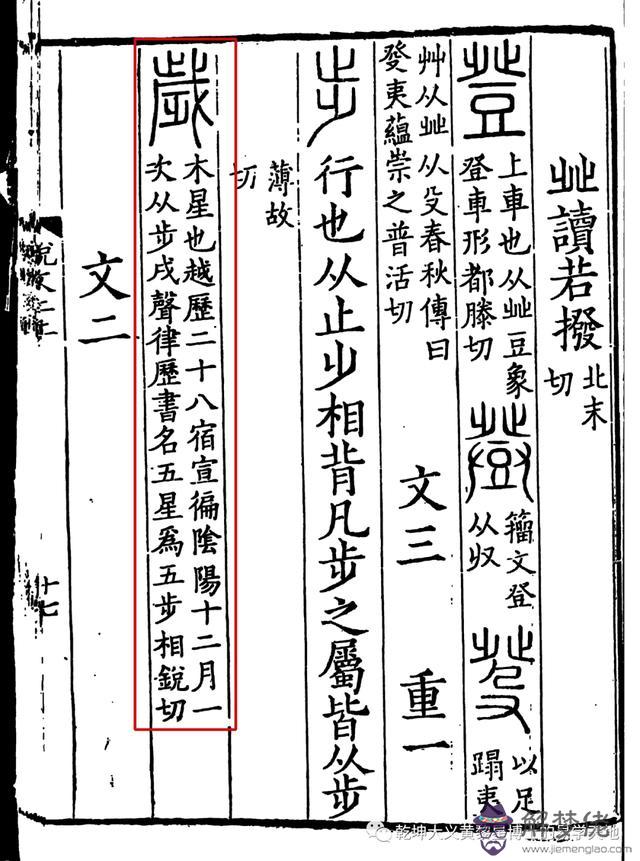 癶讀若撥 北末
切
登 上車也从癶豆象
登車形都滕切
𤼷 籒文登
从収
癹 以足
蹋夷
艸从癶从殳春秋傳曰
癹夷蘊崇之普活切
文三 重一
步 行也从止𣥂相背凡步之屬皆从步
薄故
切
歲 木星也越歷二十八宿宣徧陰陽十二月一
次从步戌聲律歷書名五星爲五步相銳切
文二
說文二上
十七
乾坤大义黄黎星博
易学
地
解梦佬
www.jiemenglao.com